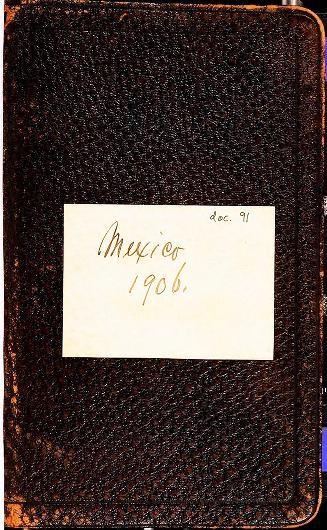 doc. 91
Mexico
1906.